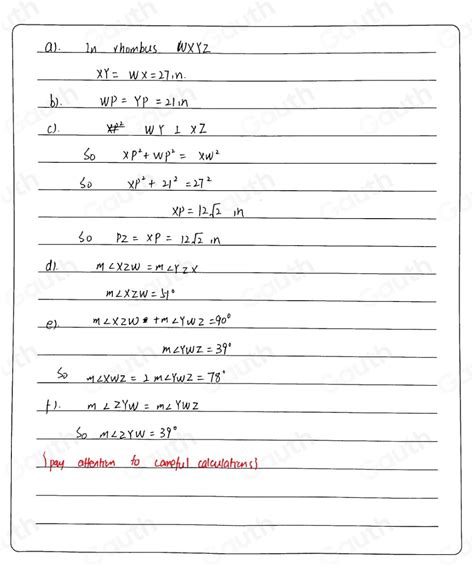 a). In rhombus WXYZ
XY = WX = 27in.
b). WP = YP = 21in
c). XP² WY ⊥ XZ
So XP² + WP² = XW²
So XP² + 21² = 27²
XP = 12√2 in
So PZ = XP = 12√2 in
d). m∠XZW = m∠YZX
m∠XZW = 51°
e). m∠XZW + m∠YWZ = 90°
m∠YWZ = 39°
So m∠XWZ = 2 m∠YWZ = 78°
f). m∠ZYW = m∠YWZ
So m∠ZYW = 39°
(pay attention to careful calculations)
Gauth